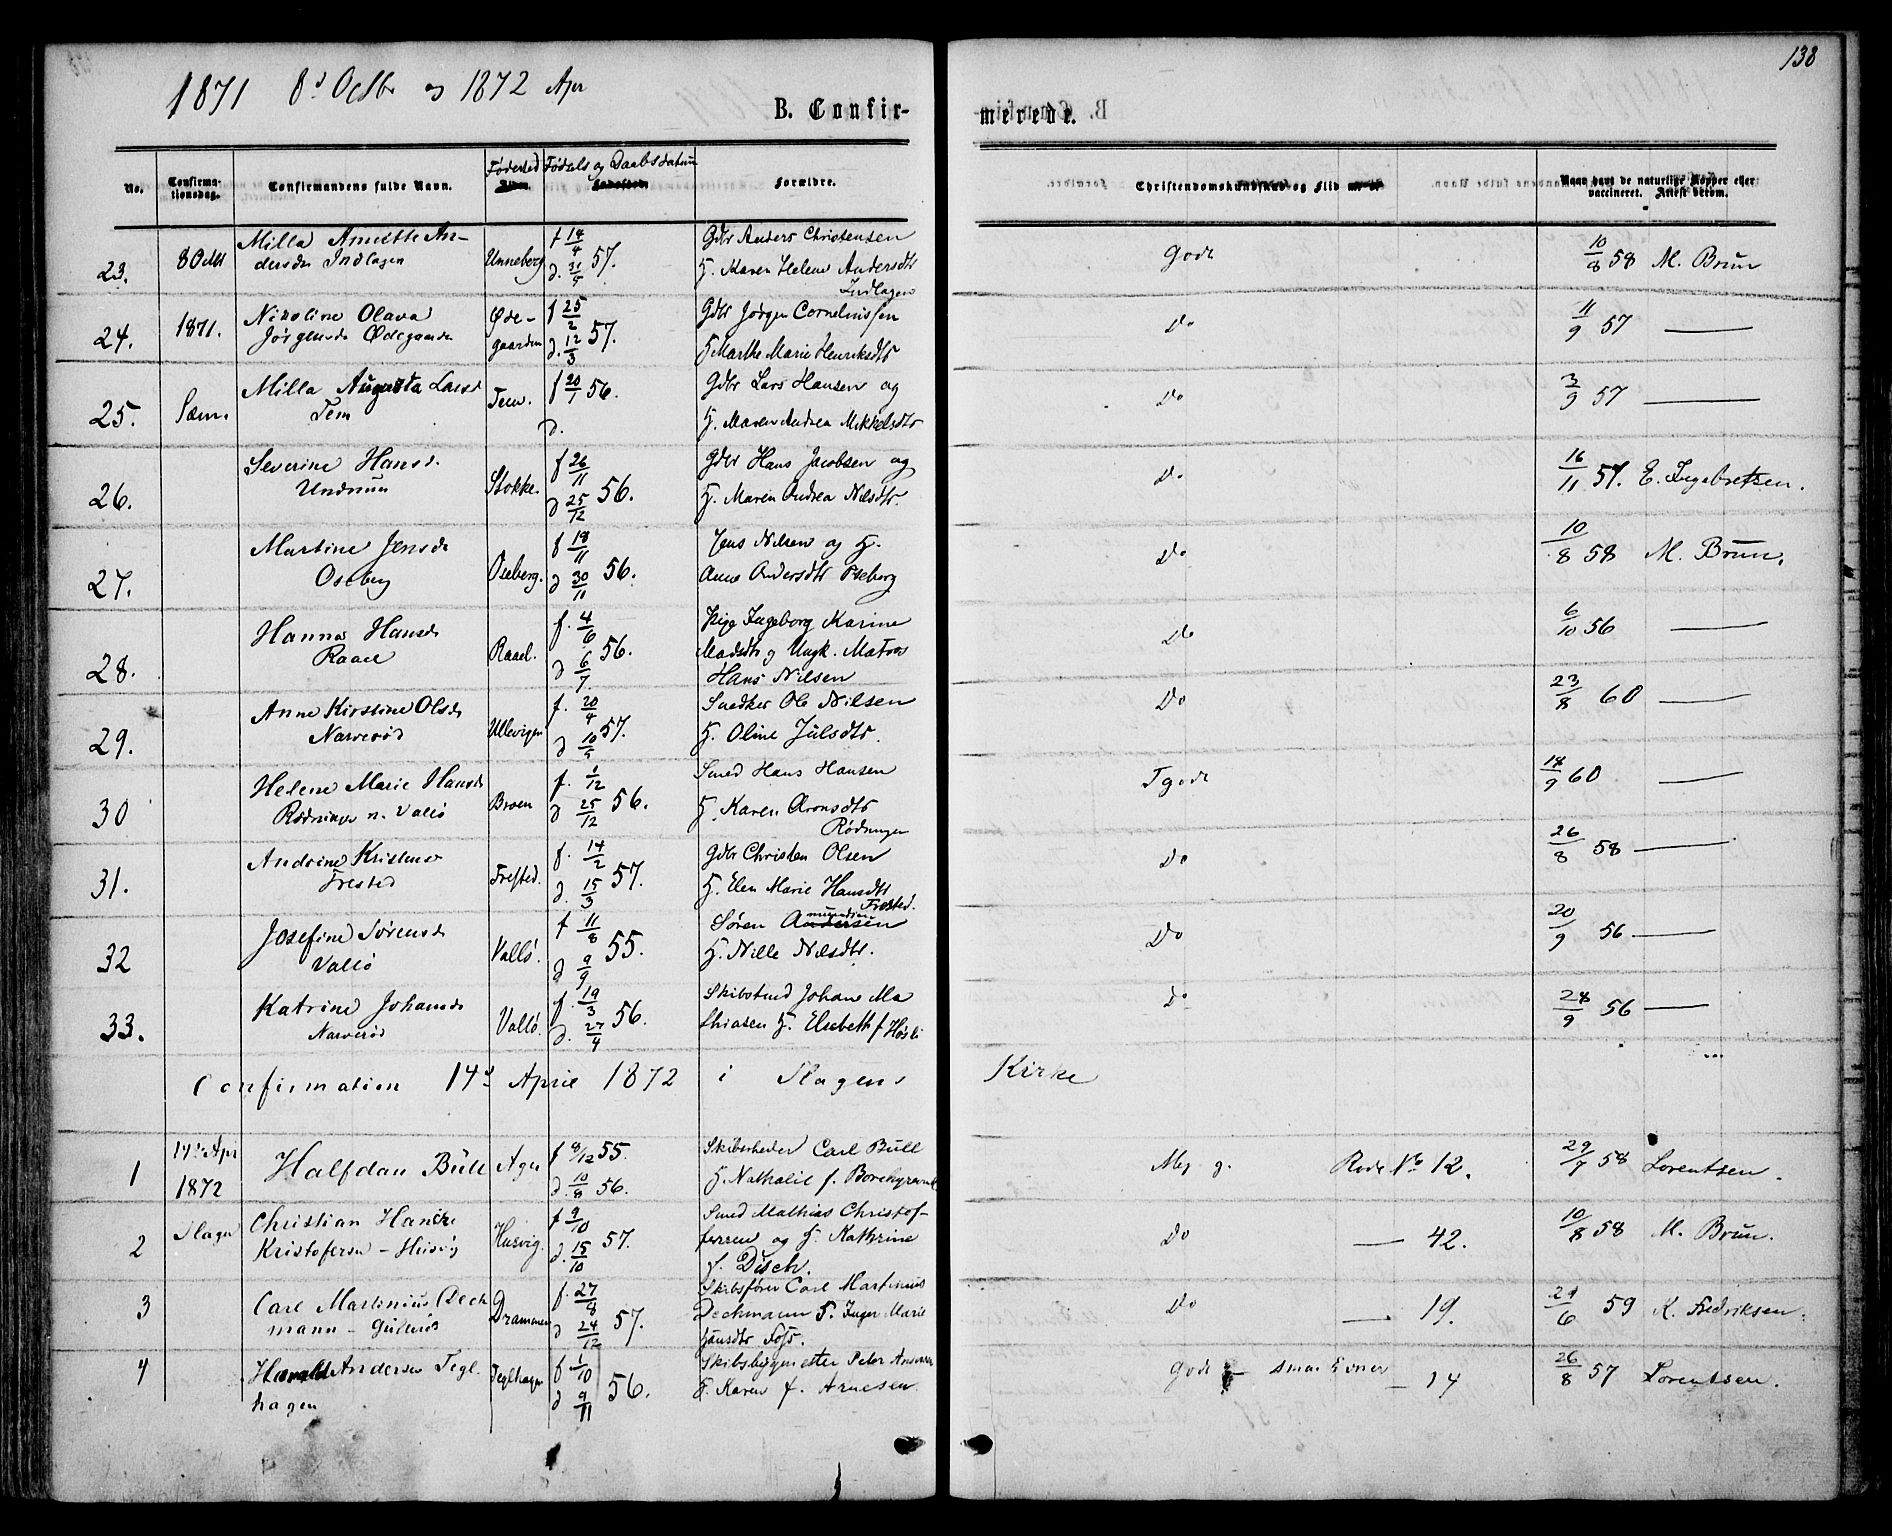 138
1871 8d Octbr og 1872 Apr
B. Confirmerede.
No. Confirmationsdag. Confirmandens fulde Navn. Fødested Fødsels og Daabsdatum Forældre. Christendomskundskab og Flid Naar havt de naturlige Kopper eller vaccineret. Attest derom.
23. 8 Octbr Milla Annette Andersdr Indlagen Unneberg f 14/4 d. 31/5 57. Gdbr Anders Christensen H. Karen Helene Andersdtr Indlagen Godt 10/8 58 M. Brun
24. 1871. Nikoline Olava Jørgensdr Ødegaarden Ødegaarden f 25/2 d. 12/3 57. Gdbr Jørgen Corneliussen H Marthe Marie Henriksdtr Do 11/9 57 —
25. Sæm. Milla Augusta Larsd Tem Tem. f 20/1 56. d. Gdbr Lars Hansen og H. Maren Andrea Mikkelsdtr Do 3/9 57 —
26. Severine Hansd. Undrum Stokke. f 26/11 d 25/12 56. Gdbr Hans Jacobsen og H. Maren Andrea Nilsdtr. Do 16/11 57. E. Ingebretsen.
27. Martine Jensdr Oseberg Oseberg. f 18/11 d 30/11 56. Jens Nilsen og H. Anne Andersdtr Oseberg Do 10/8 58 M. Brun.
28. Hanna Hansd Raael Raael. f. 4/6 d 6/7 56. Pige Ingeborg Karine Madsdtr og Ungk. Matros Hans Nilsen Do 6/10 56 —
29. Anne Kirstine Olsdr Narverød Ullevigen f. 20/4 d 10/5 57. Snedker Ole Nilsen H. Oline Julsdtr. Do 23/8 60 —
30 Helene Marie Hansd Rødningen n. Vallö Broen f. 1/12 d 25/12 56. Smed Hans Hansen H. Karen Aronsdtr Rødningen Tgodt 18/9 60 —
31. Andrine Kristens Frested Frested. f. 14/2 d. 15/3 57. Gdbr Christen Olsen H. Elen Marie Hansdtr Frested. Do 26/8 58 —
32 Josefine Sørensdr Vallö Vallö. f 11/8 d 9/9 55. Søren Amundsen H. Nille Nilsdtr. Do 20/9 56 —
33. Katrine Johansdr Narverød Vallö. f. 19/3 d. 27/4 56. Skibstmd Johan Mathiasen H. Elsebeth f Høsli Do 28/9 56 —
Confirmation 14d April 1872 i Slagens Kirke
1 14d Apr 1872 Halfdan Büll Ager f 8/12 55. d. 10/8 56. Skibsrheder Carl Büll H. Nathalie f. Borchgrevink Meg g. Rode No 12. 29/7 58 Lorentsen.
2 Slagen Christian Hancke Kristofersen - Husvig Husvig. f 9/10 d. 15/10 57. Smed Mathias Christoffersen og H. Kathrine f. Disch. Do — 42. 10/8 58 M. Brun.
3 Carl Martinius Dechmann - Gulerød Drammen f. 27/8 d 24/12 57. Skibsfører Carl Martinius Dechmann H. Inger Marie Hansdtr Foss. Do — 19. 29/6 59 K. Fredriksen.
4 Harald Andersen Teglhagen Teglhagen f 1/10 d 9/11 56. Skibsbygmester Peter Andersen H. Karen f. Arnesen. Godt - smaa Evner — 14 26/8 57 Lorentsen.